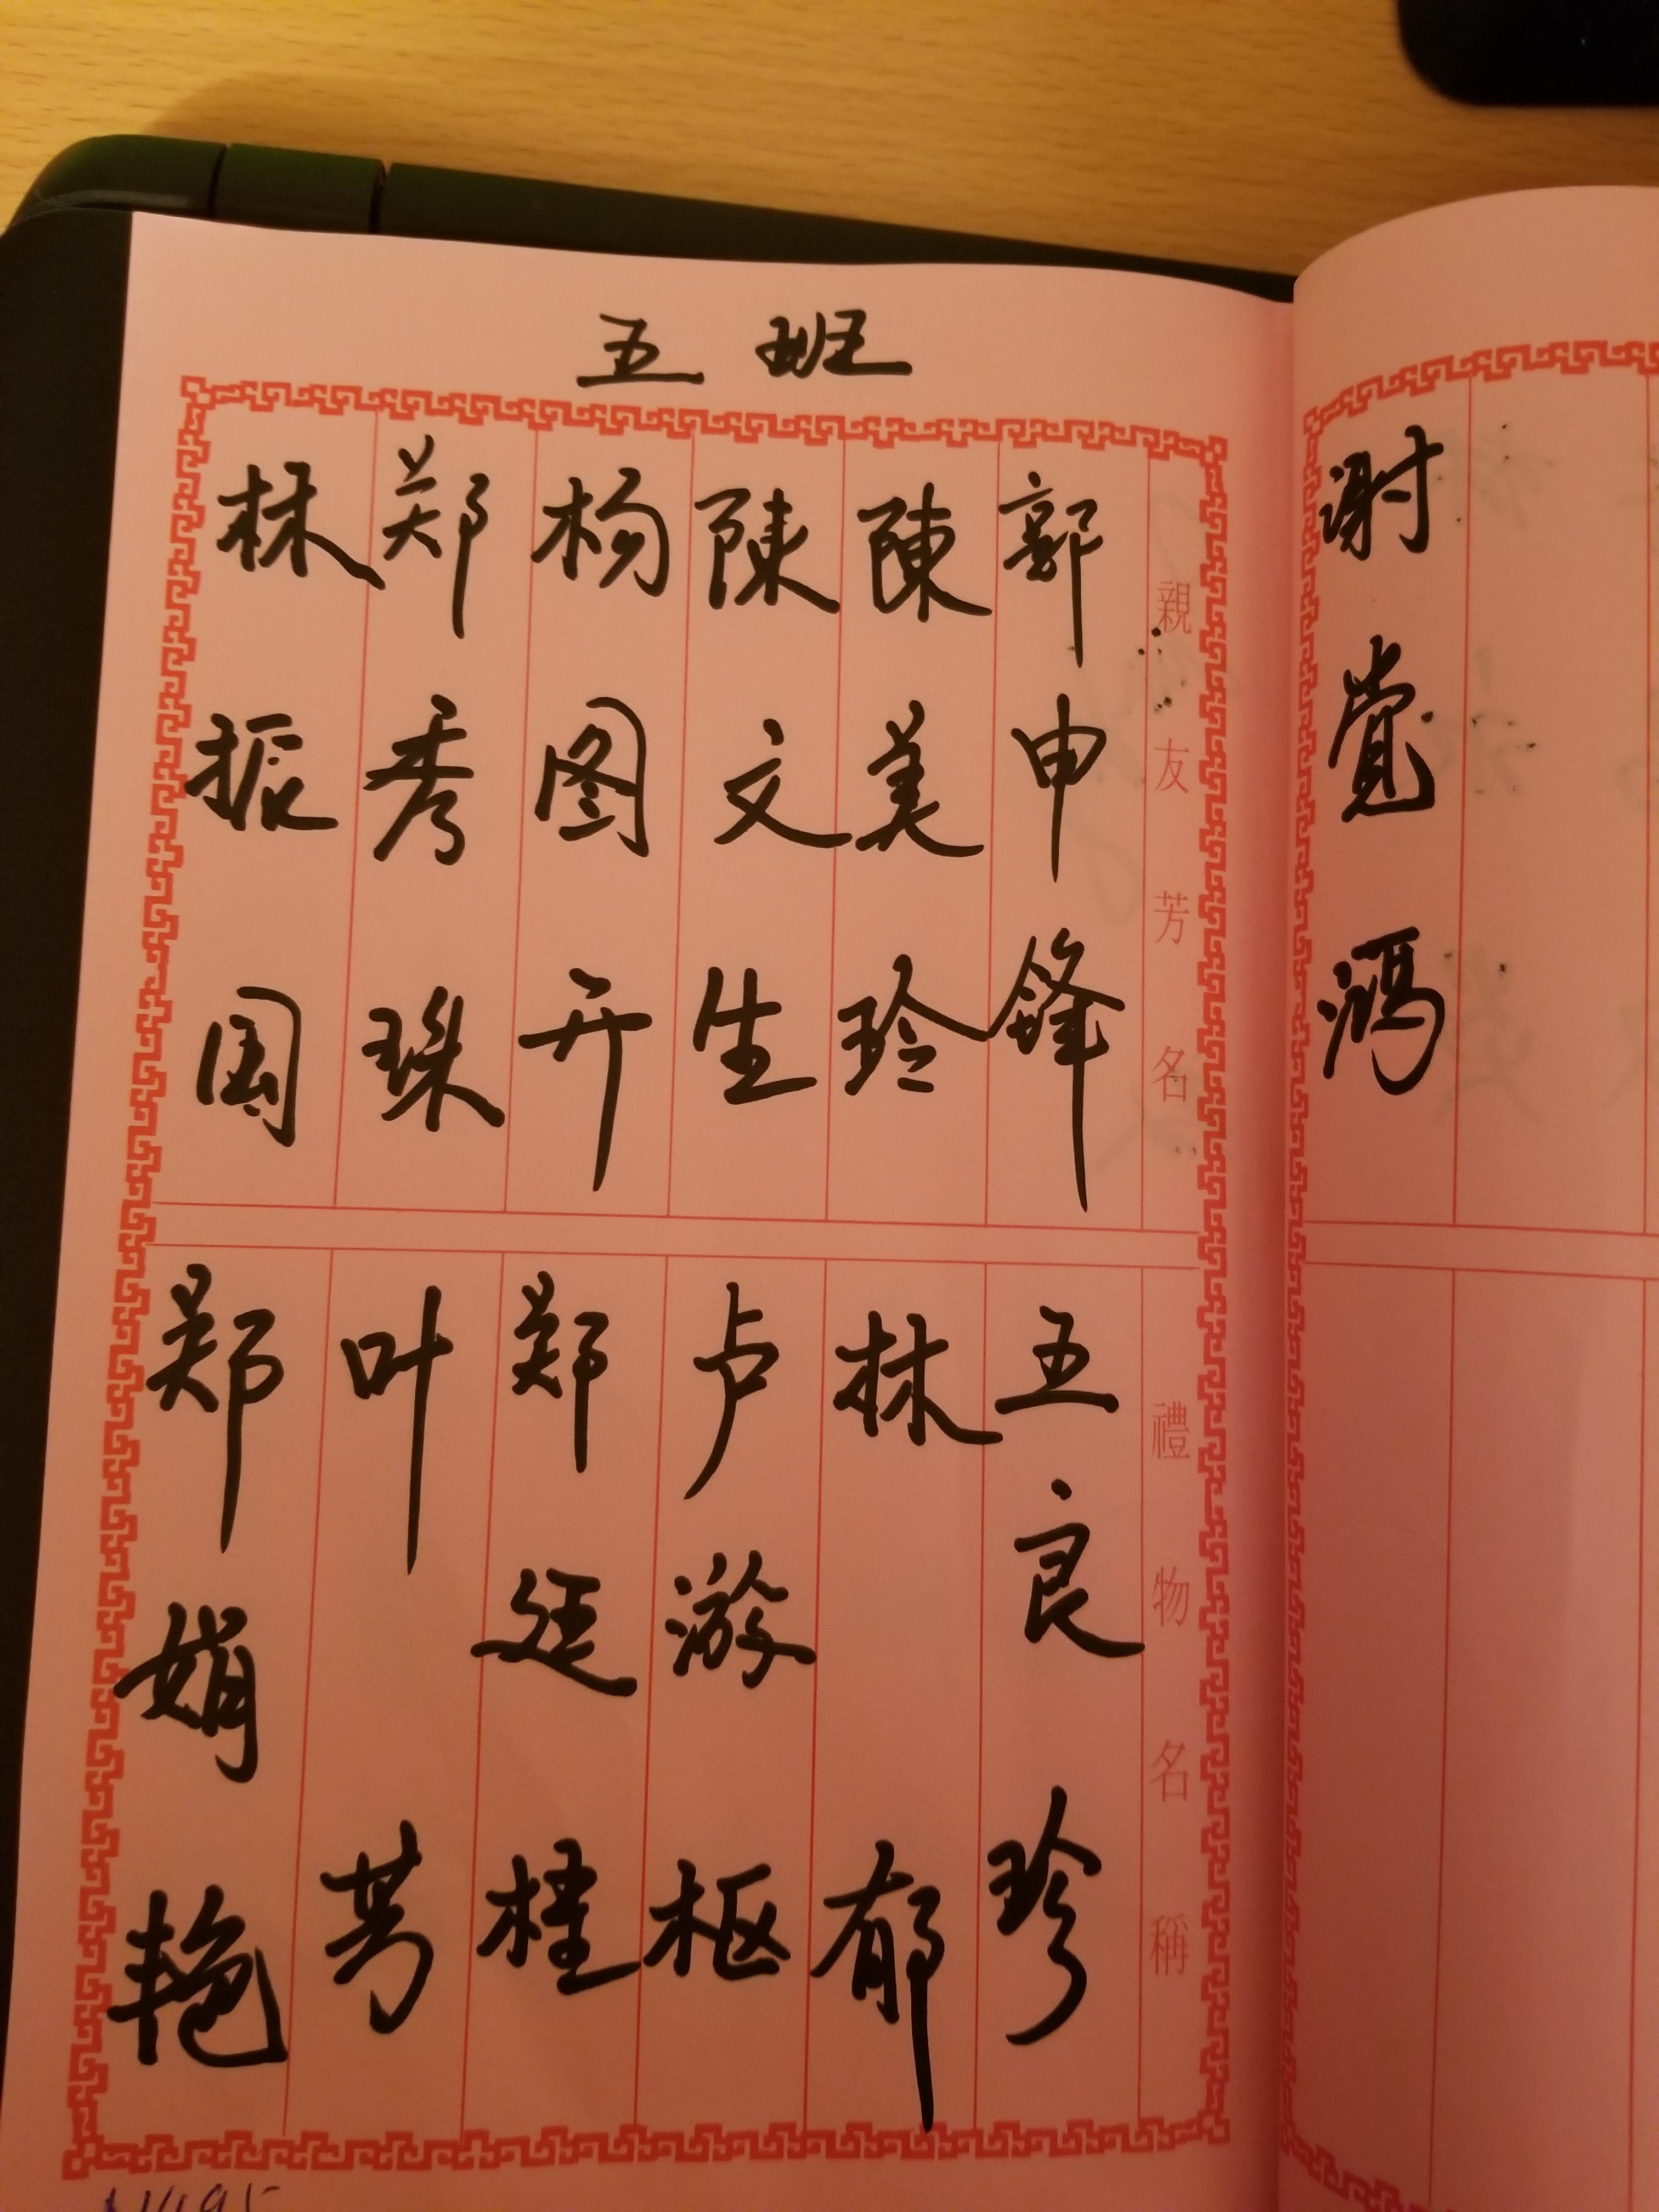 五班
親友芳名
郭申锋
陳美玲
陳文生
杨图开
郑秀珠
林振国
禮物名稱
王良珍
林郁
卢游枢
郑廷桂
叶芳
郑娟艳
谢觉鸿